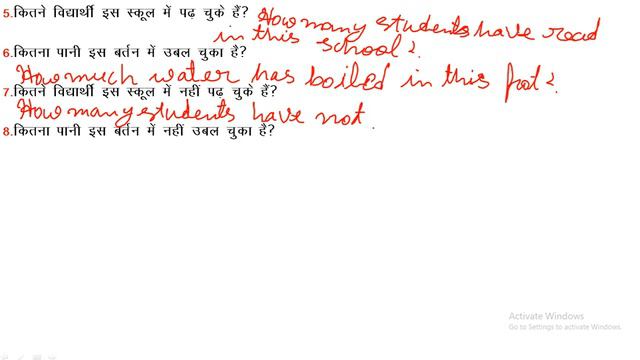 5.कितने विद्यार्थी इस स्कूल में पढ़ चुके हैं? How many students have read
in this school?
6.कितना पानी इस बर्तन में उबल चुका है?
How much water has boiled in this pot?
7.कितने विद्यार्थी इस स्कूल में नहीं पढ़ चुके हैं?
How many students have not
8.कितना पानी इस बर्तन में नहीं उबल चुका है?
Activate Windows
Go to Settings to activate Windows.